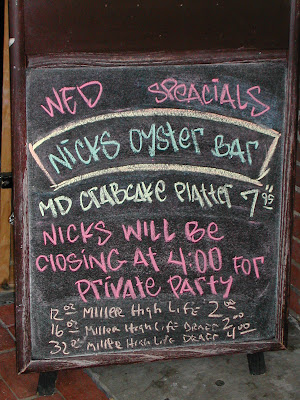 WED SPEACIALS
NICKS OYSTER BAR
MD CRABCAKE PLATTER 7.95
NICKS WILL BE
CLOSING AT 4:00 FOR
PRIVATE PARTY
12 OZ MILLER HIGH LIFE 2.00
16 OZ MILLER HIGH LIFE DRAFT 2.00
32 OZ MILLER HIGH LIFE DRAFT 4.00